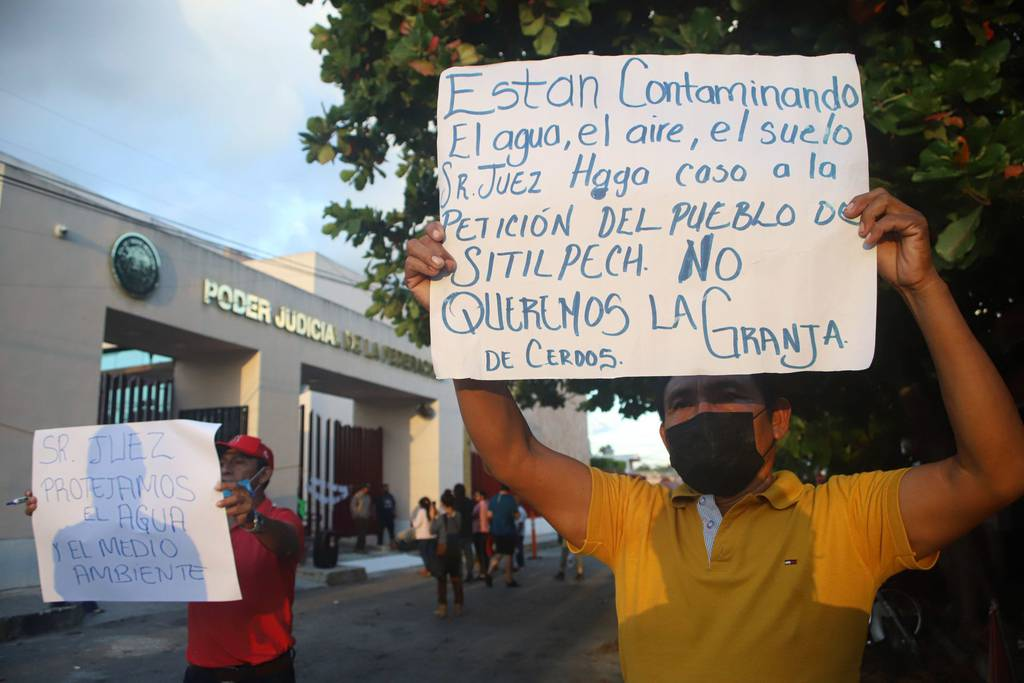 Estan Contaminando
El agua, el aire, el suelo
Sr. Juez Haga caso a la
PETICIÓN DEL PUEBLO DE
SITILPECH. NO
QUEREMOS LA GRANJA.
DE CERDOS.
PODER JUDICIAL DE LA FEDERACIÓN
SR. JUEZ
PROTEJAMOS
EL AGUA
Y EL MEDIO
AMBIENTE